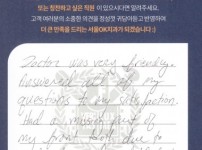 또는 칭찬하고 싶은 직원이 있으시다면 알려주세요.
고객 여러분의 소중한 의견을 정성껏 귀담아듣고 반영하여
더 큰 만족을 드리는 서울OK치과가 되겠습니다 :)
Doctor was very friendly.
Answered all of my
questions to my satisfaction.
Had a missing part of
my front tooth due to